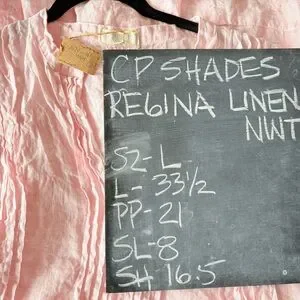 CP SHADES
REGINA LINEN
NWT
SZ- L
L- 33 1/2
PP- 21
SL-8
SH 16.5